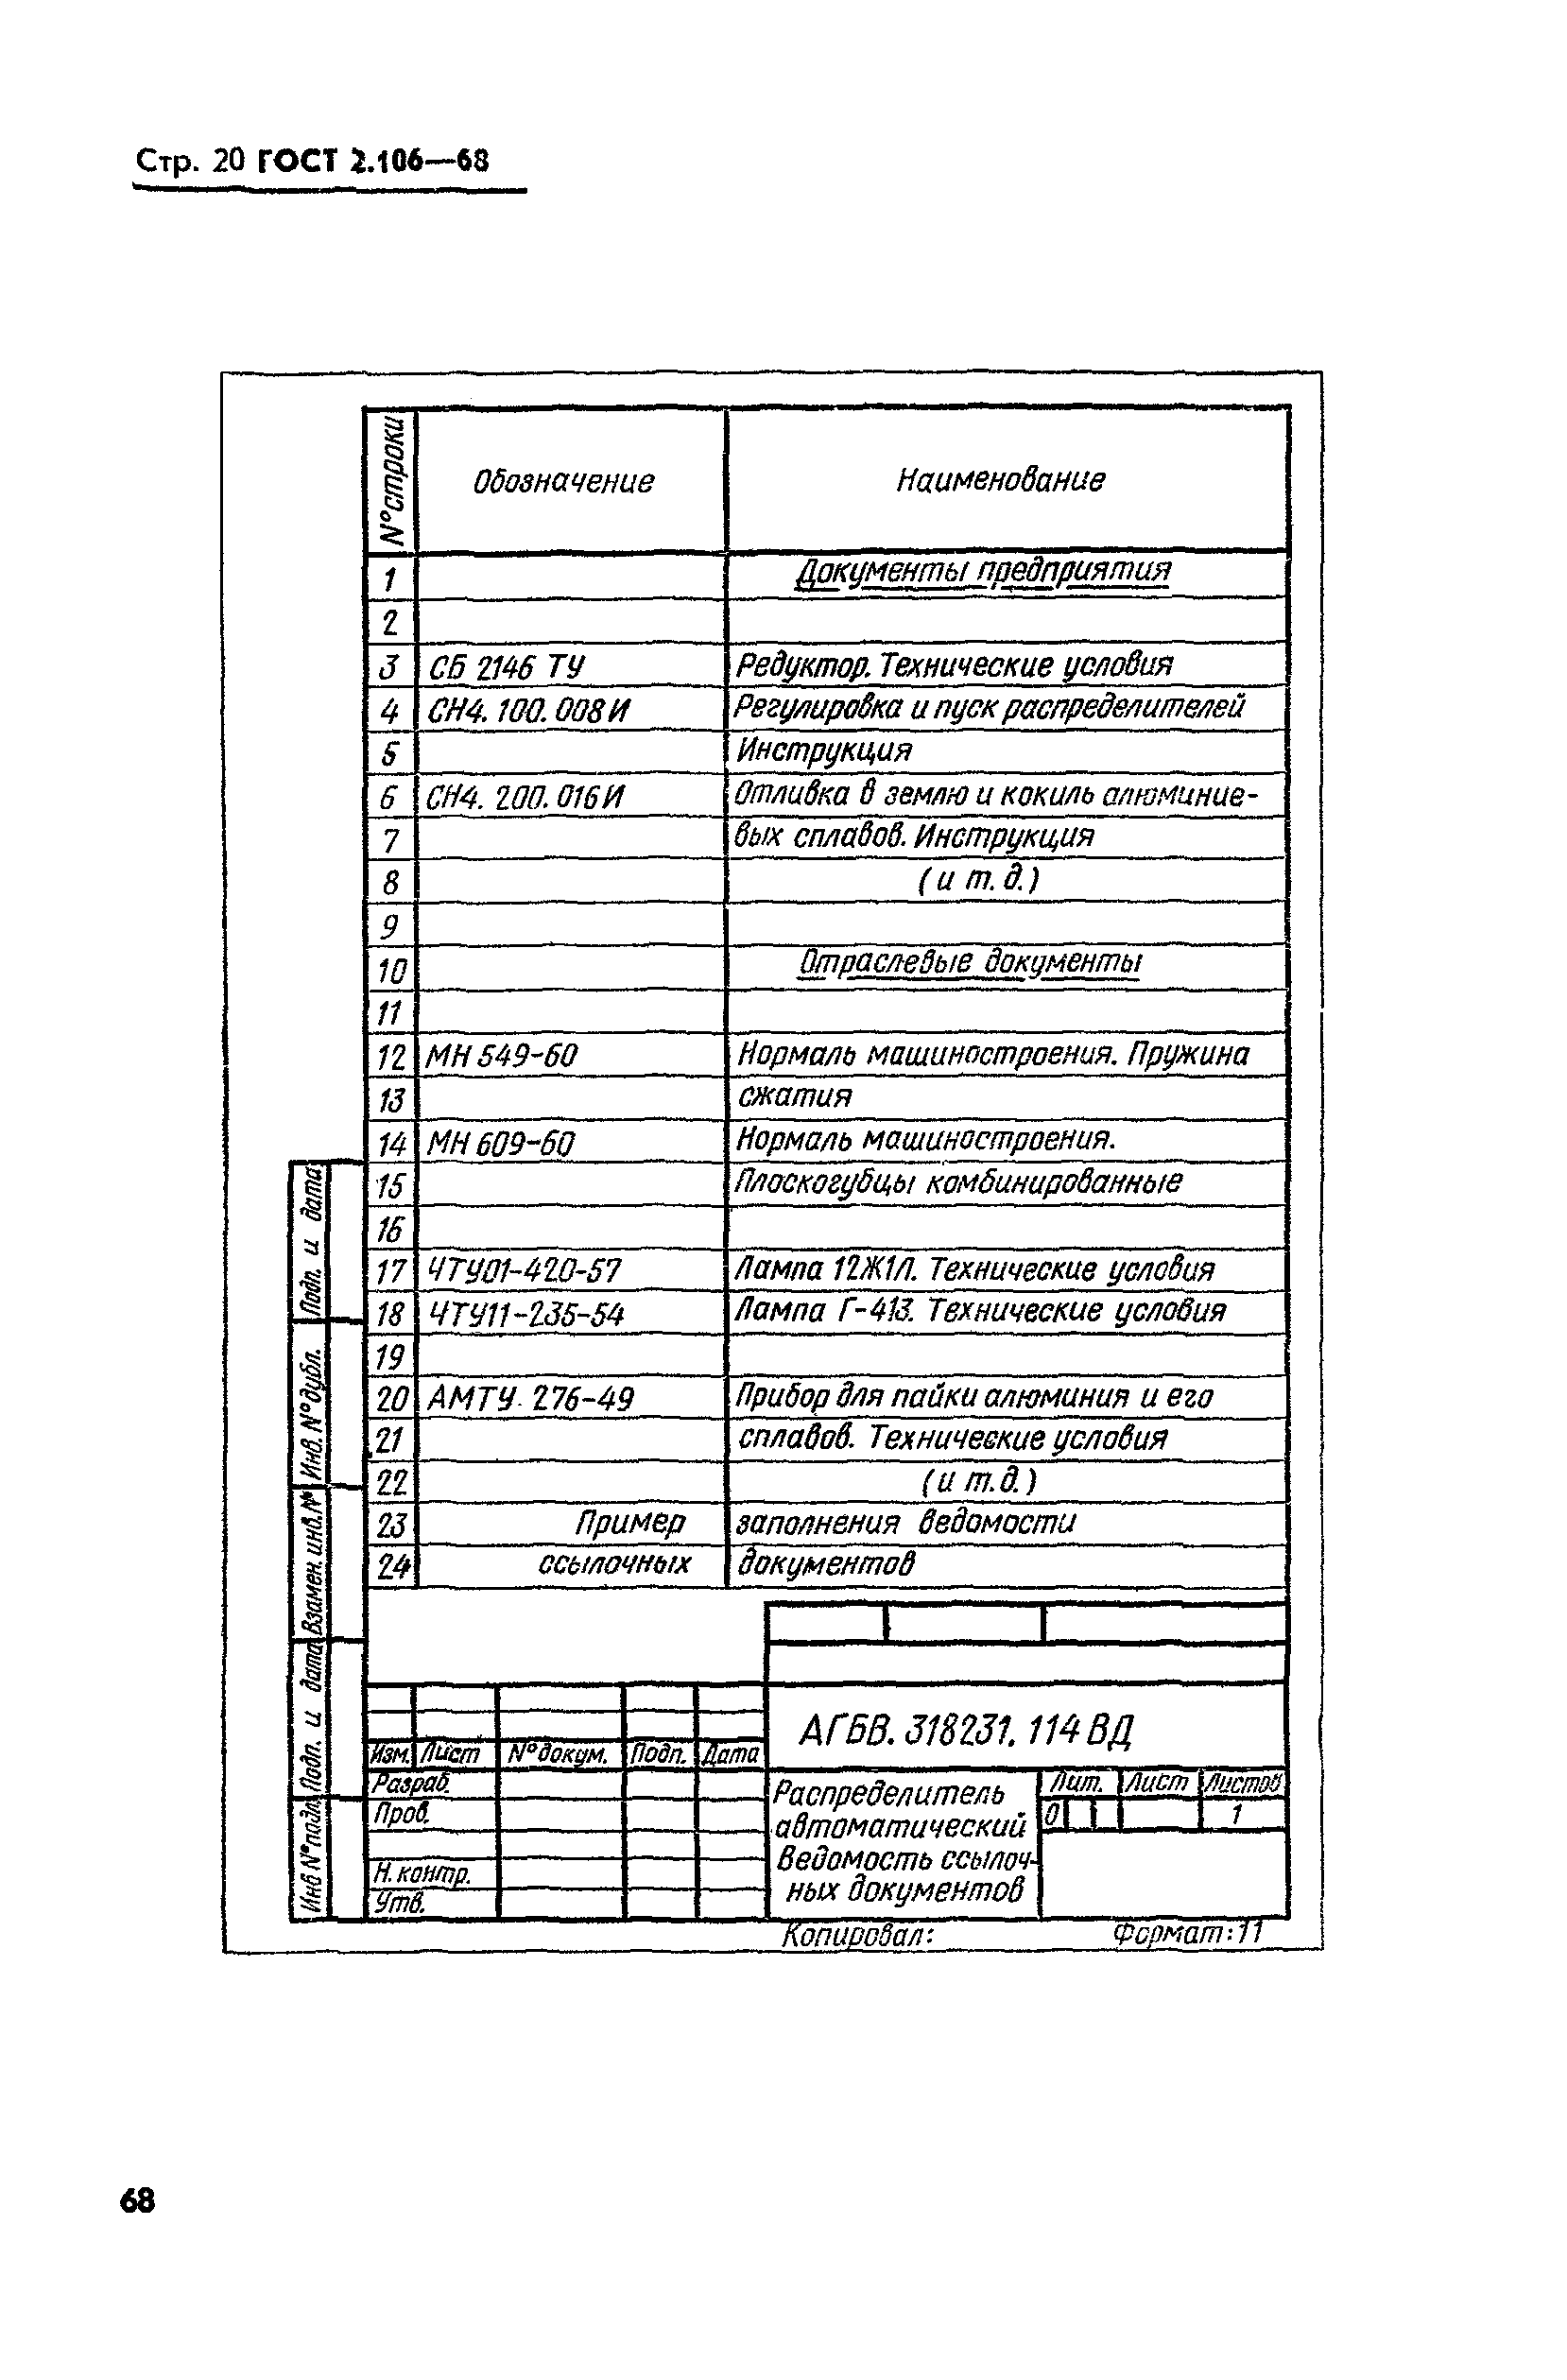 Стр. 20 ГОСТ 2.106—68
№ строки Обозначение Наименование
1 Документы предприятия
2
3 СБ 2146 ТУ Редуктор. Технические условия
4 СН4. 100. 008 И Регулировка и пуск распределителей
5 Инструкция
6 СН4. 200. 016 И Отливка в землю и кокиль алюминие-
7 вых сплавов. Инструкция
8 (и т. д.)
9
10 Отраслевые документы
11
12 МН 549-60 Нормаль машиностроения. Пружина
13 сжатия
14 МН 609-60 Нормаль машиностроения.
15 Плоскогубцы комбинированные
16
17 ЧТУ01-420-57 Лампа 12Ж1Л. Технические условия
18 ЧТУ11-235-54 Лампа Г-413. Технические условия
19
20 АМТУ. 276-49 Прибор для пайки алюминия и его
21 сплавов. Технические условия
22 (и т. д.)
23 Пример заполнения ведомости
24 ссылочных документов
Подп. и дата
Инв. № дубл.
Взамен. инв. №
Подп. и дата
Инв № подл.
АГБВ. 318231. 114 ВД
Изм. Лист № докум. Подп. Дата
Разраб.
Пров.
Н. контр.
Утв.
Распределитель
автоматический
Ведомость ссылоч-
ных документов
Лит. Лист Листов
О 1
Копировал: Формат: 11
68